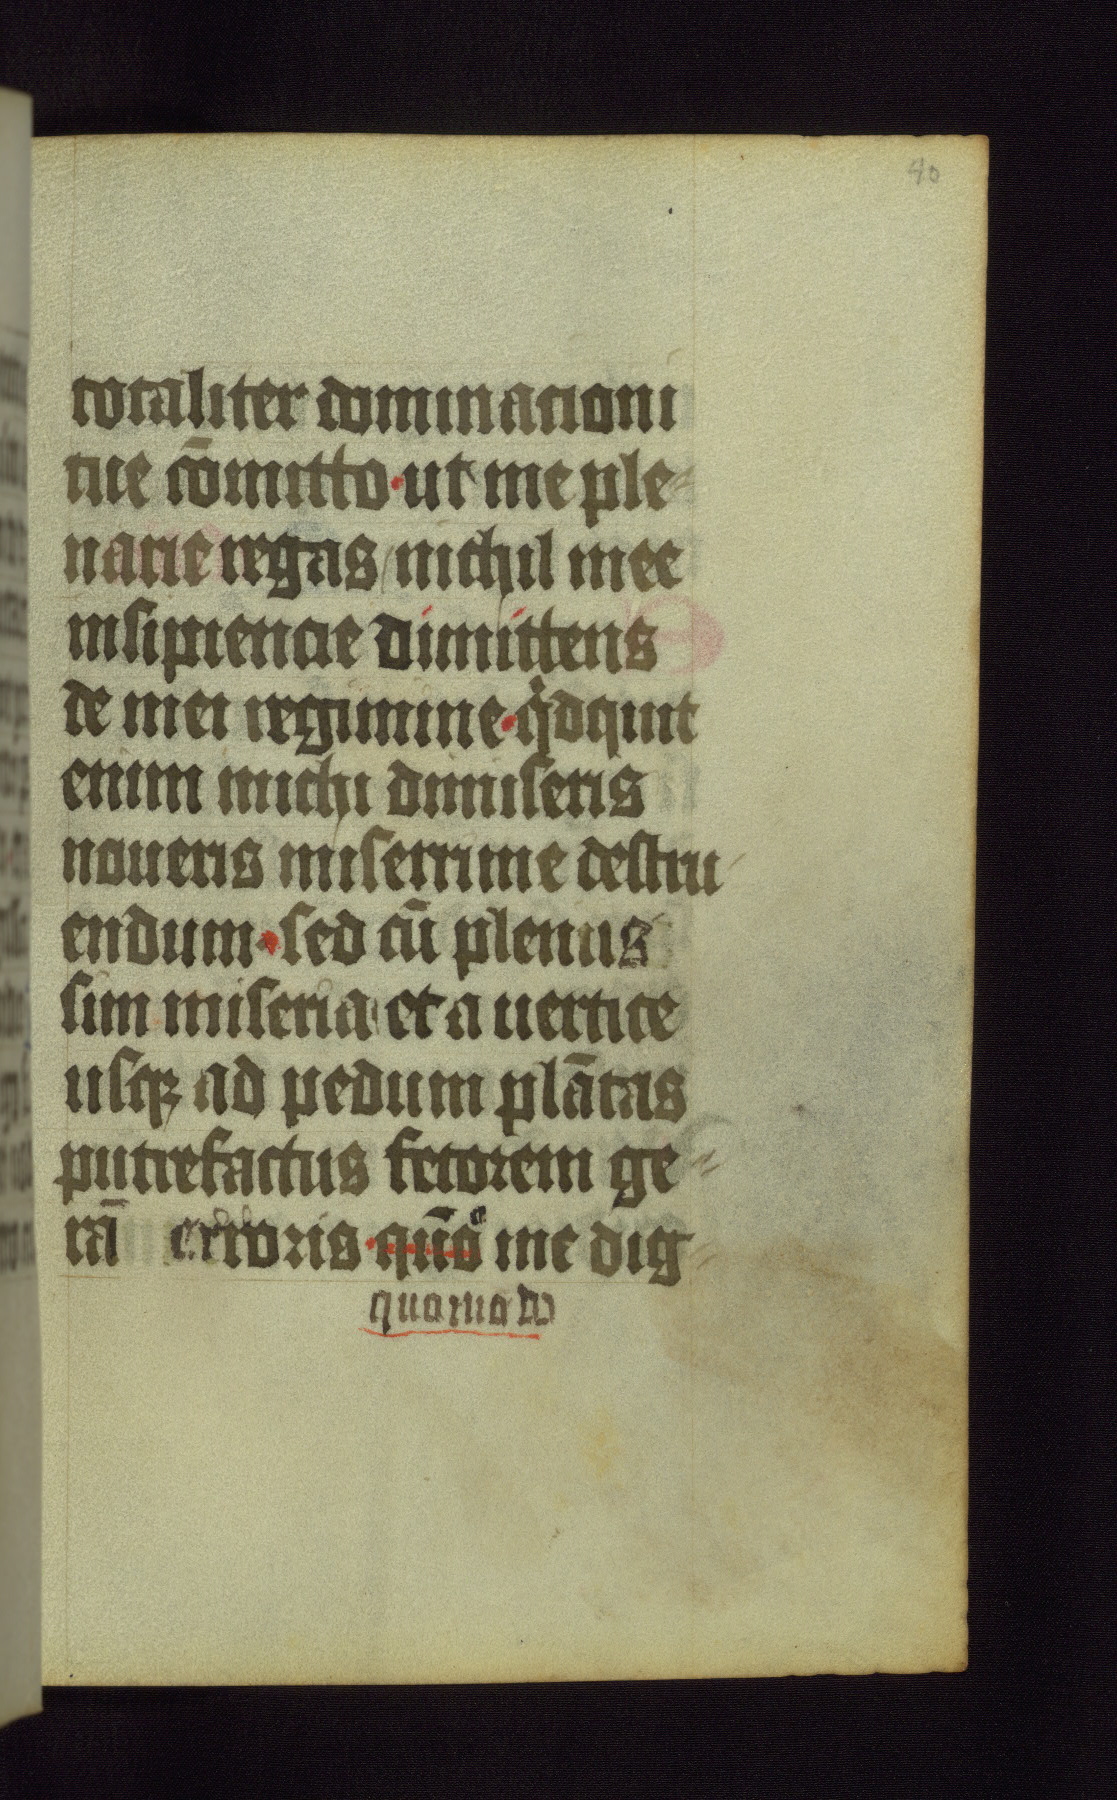 40
totaliter dominacioni
tue cōmitto · ut me ple-
narie regas nichil mee
insipiencie dimittens
de mei regimine · qͥdquit
enim michi dimiseris
noueris miserrime destru-
endum · sed cū plenus
sim miseria et a uertice
usqꝫ ad pedum plātas
putrefactus fetorem ge-
rā erroris · qūoͣ me dig-
quomodo